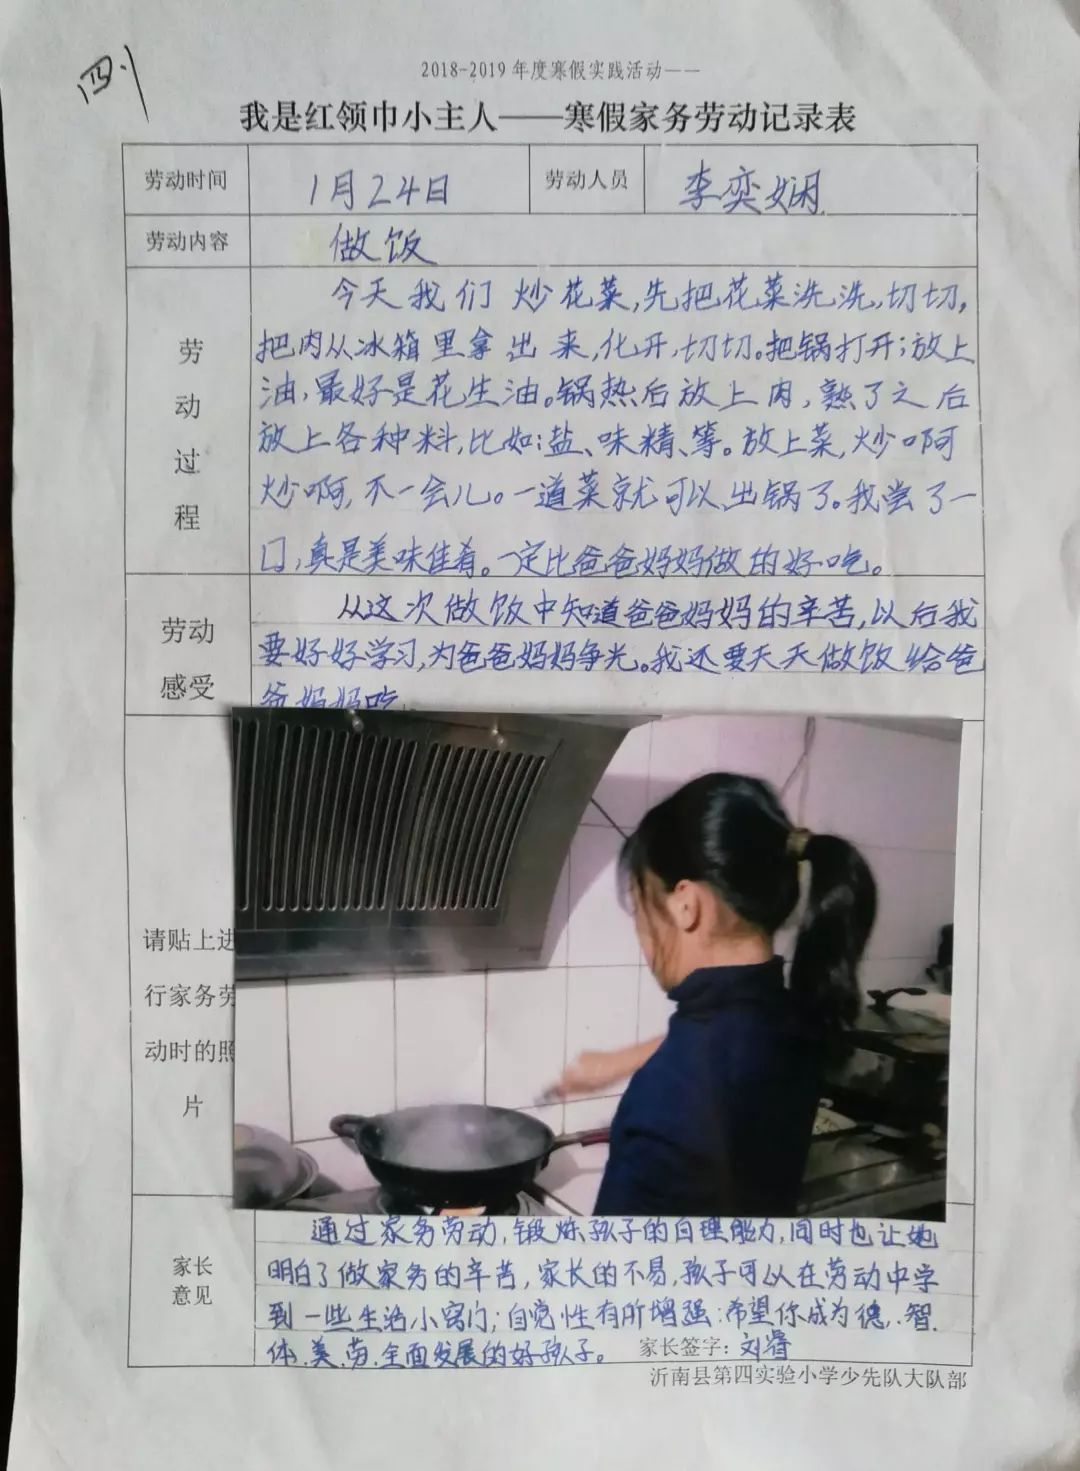 四1
2018-2019年度寒假实践活动——
我是红领巾小主人——寒假家务劳动记录表
劳动时间 1月24日 劳动人员 李奕娴
劳动内容 做饭
劳动过程
今天我们炒花菜,先把花菜洗洗,切切,
把肉从冰箱里拿出来,化开,切切。把锅打开;放上
油,最好是花生油。锅热后放上肉,熟了之后
放上各种料,比如:盐、味精、等。放上菜,炒啊
炒啊,不一会儿。一道菜就可以出锅了。我尝了一
口,真是美味佳肴。一定比爸爸妈妈做的好吃。
劳动感受
从这次做饭中知道爸爸妈妈的辛苦,以后我
要好好学习,为爸爸妈妈争光。我还要天天做饭给爸
爸妈妈吃。
请贴上进
行家务劳
动时的照
片
家长意见
通过家务劳动,锻炼孩子的自理能力,同时也让她
明白了做家务的辛苦,家长的不易,孩子可以在劳动中学
到一些生活小窍门;自觉性有所增强:希望你成为德、智、
体、美、劳、全面发展的好孩子。 家长签字:刘睿
沂南县第四实验小学少先队大队部